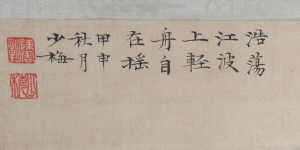 浩蕩
江波
上輕
舟自
在搖
甲申
秋月
少梅